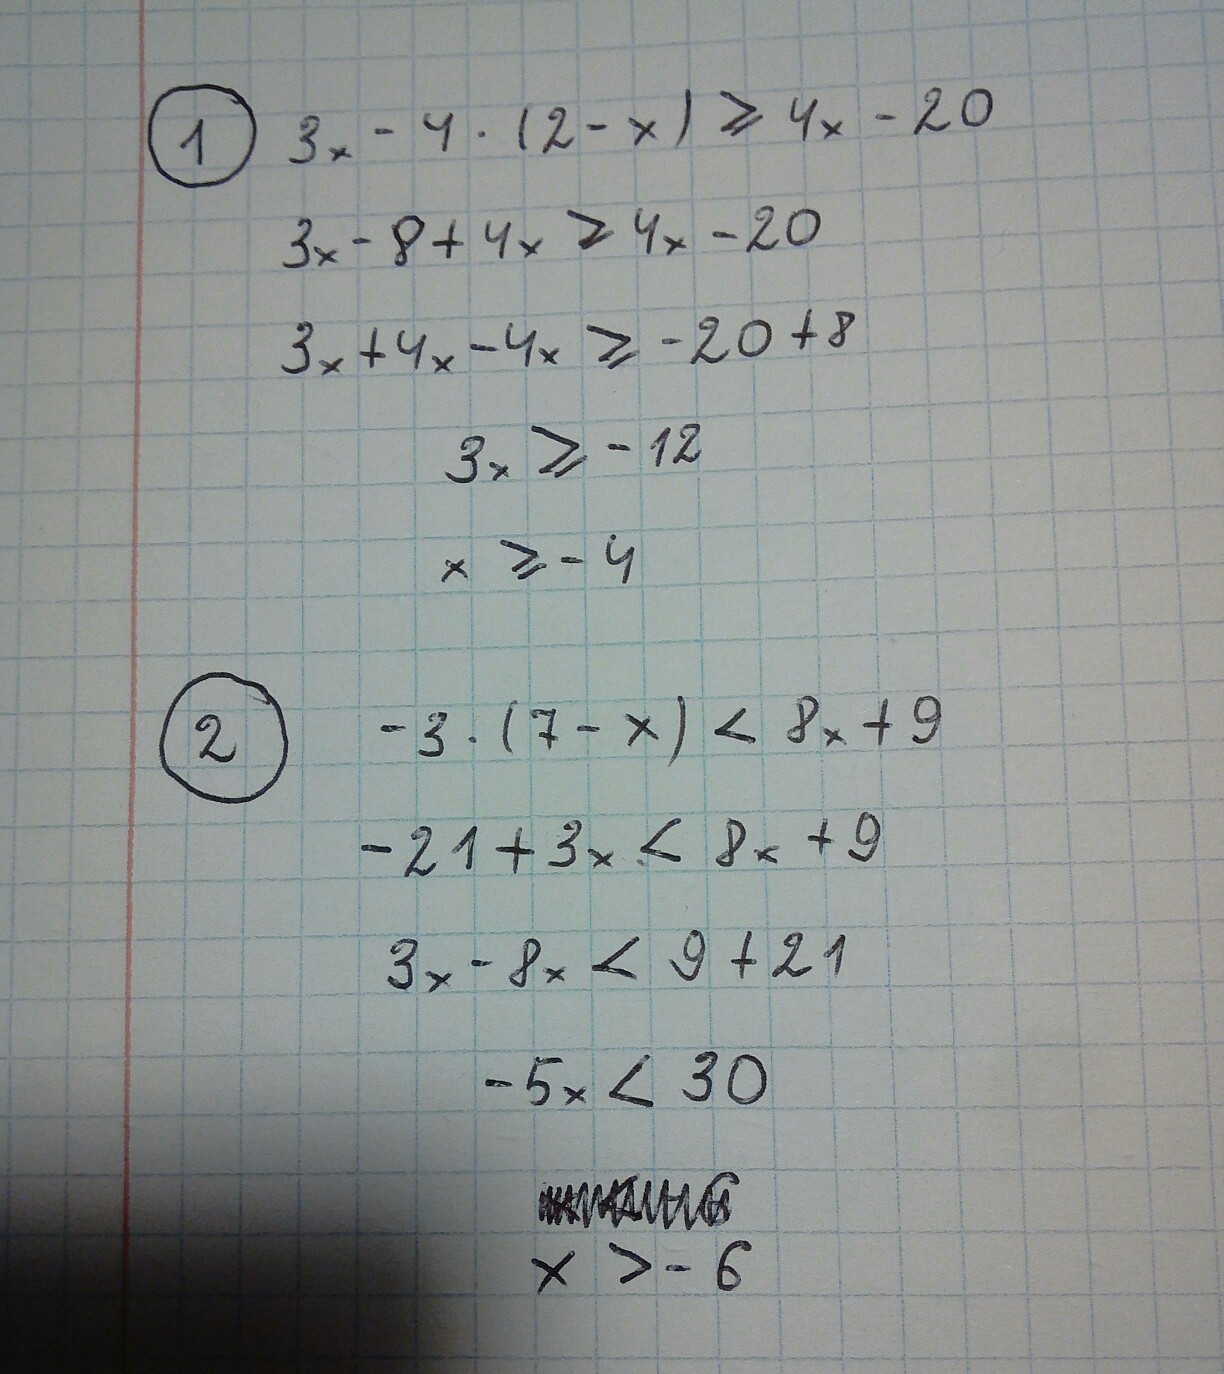 1 3x - 4 · (2 - x) ⩾ 4x - 20
3x - 8 + 4x ⩾ 4x - 20
3x + 4x - 4x ⩾ -20 + 8
3x ⩾ -12
x ⩾ -4
2 -3 · (7 - x) < 8x + 9
-21 + 3x < 8x + 9
3x - 8x < 9 + 21
-5x < 30
x > -6